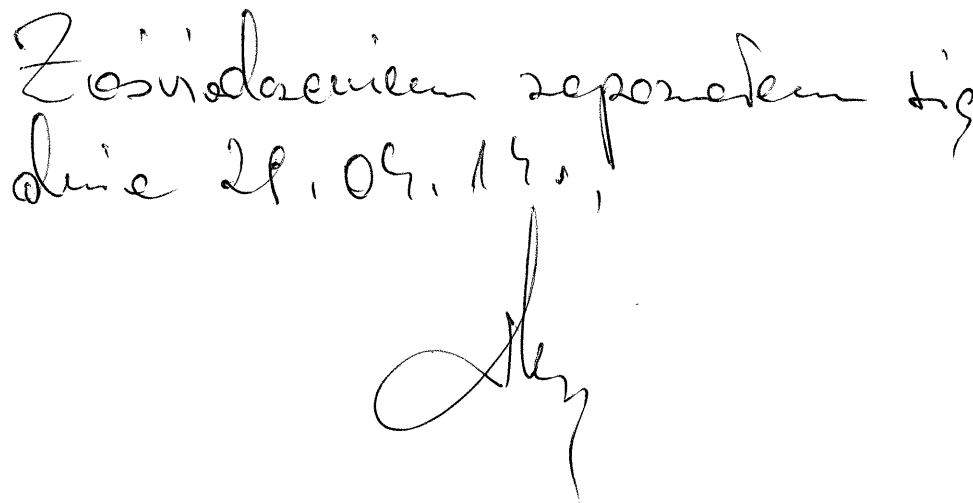 Z oświadczeniem zapoznałem się
dnia 29.04.14r.